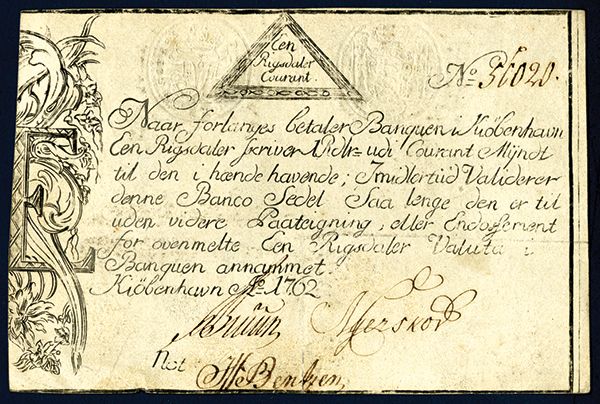 Een
Rigsdaler
Courant.
No. 56020.
Naar forlanges betaler Banquen i Kiöbenhavn
Een Rigsdaler skriver 1 Rdlr udi Courant Mÿndt
til den i hænde havende; Imidlertiid Validerer
denne Banco Sedel Saa lenge den er til
uden videre Paateigning, eller Endossement
for ovenmelte Een Rigsdaler Valuta i
Banquen annammet.
Kiöbenhavn Ao. 1762
Not HBentzen,